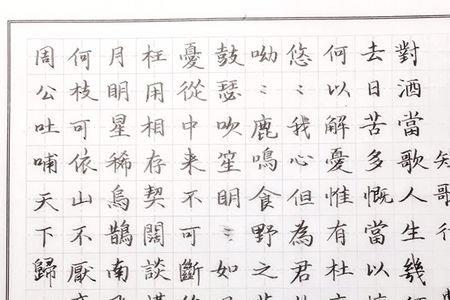 短歌行
對酒當歌人生幾
去日苦多慨當以
何以解憂惟有杜
悠〻我心但為君
呦〻鹿鳴食野之
鼓瑟吹笙明〻如
憂從中来不可斷
枉用相存契闊談
月明星稀烏鵲南
何枝可依山不厭
周公吐哺天下歸